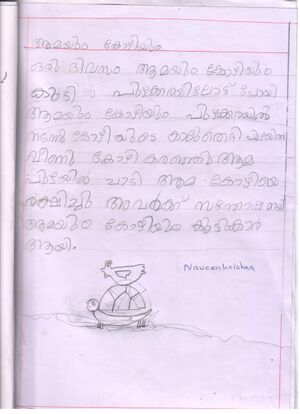 ആമയും കോഴിയും
ഒരു ദിവസം ആമയും കോഴിയും
കൂടി പുഴക്കരയിലോട്ട് പോയി
ആമയും കോഴിയും പുഴക്കരയിൽ
നടന്നു കോഴിയുടെ കാല്തെറ്റി പുഴയിൽ
വീണു കോഴി കരഞ്ഞു ആമ
പുഴയിൽ ചാടി ആമ കോഴിയെ
രക്ഷിച്ചു അവർക്ക് സന്തോഷമായി
ആമയും കോഴിയും കൂട്ടുകാർ
ആയി.
Naveenkrishna